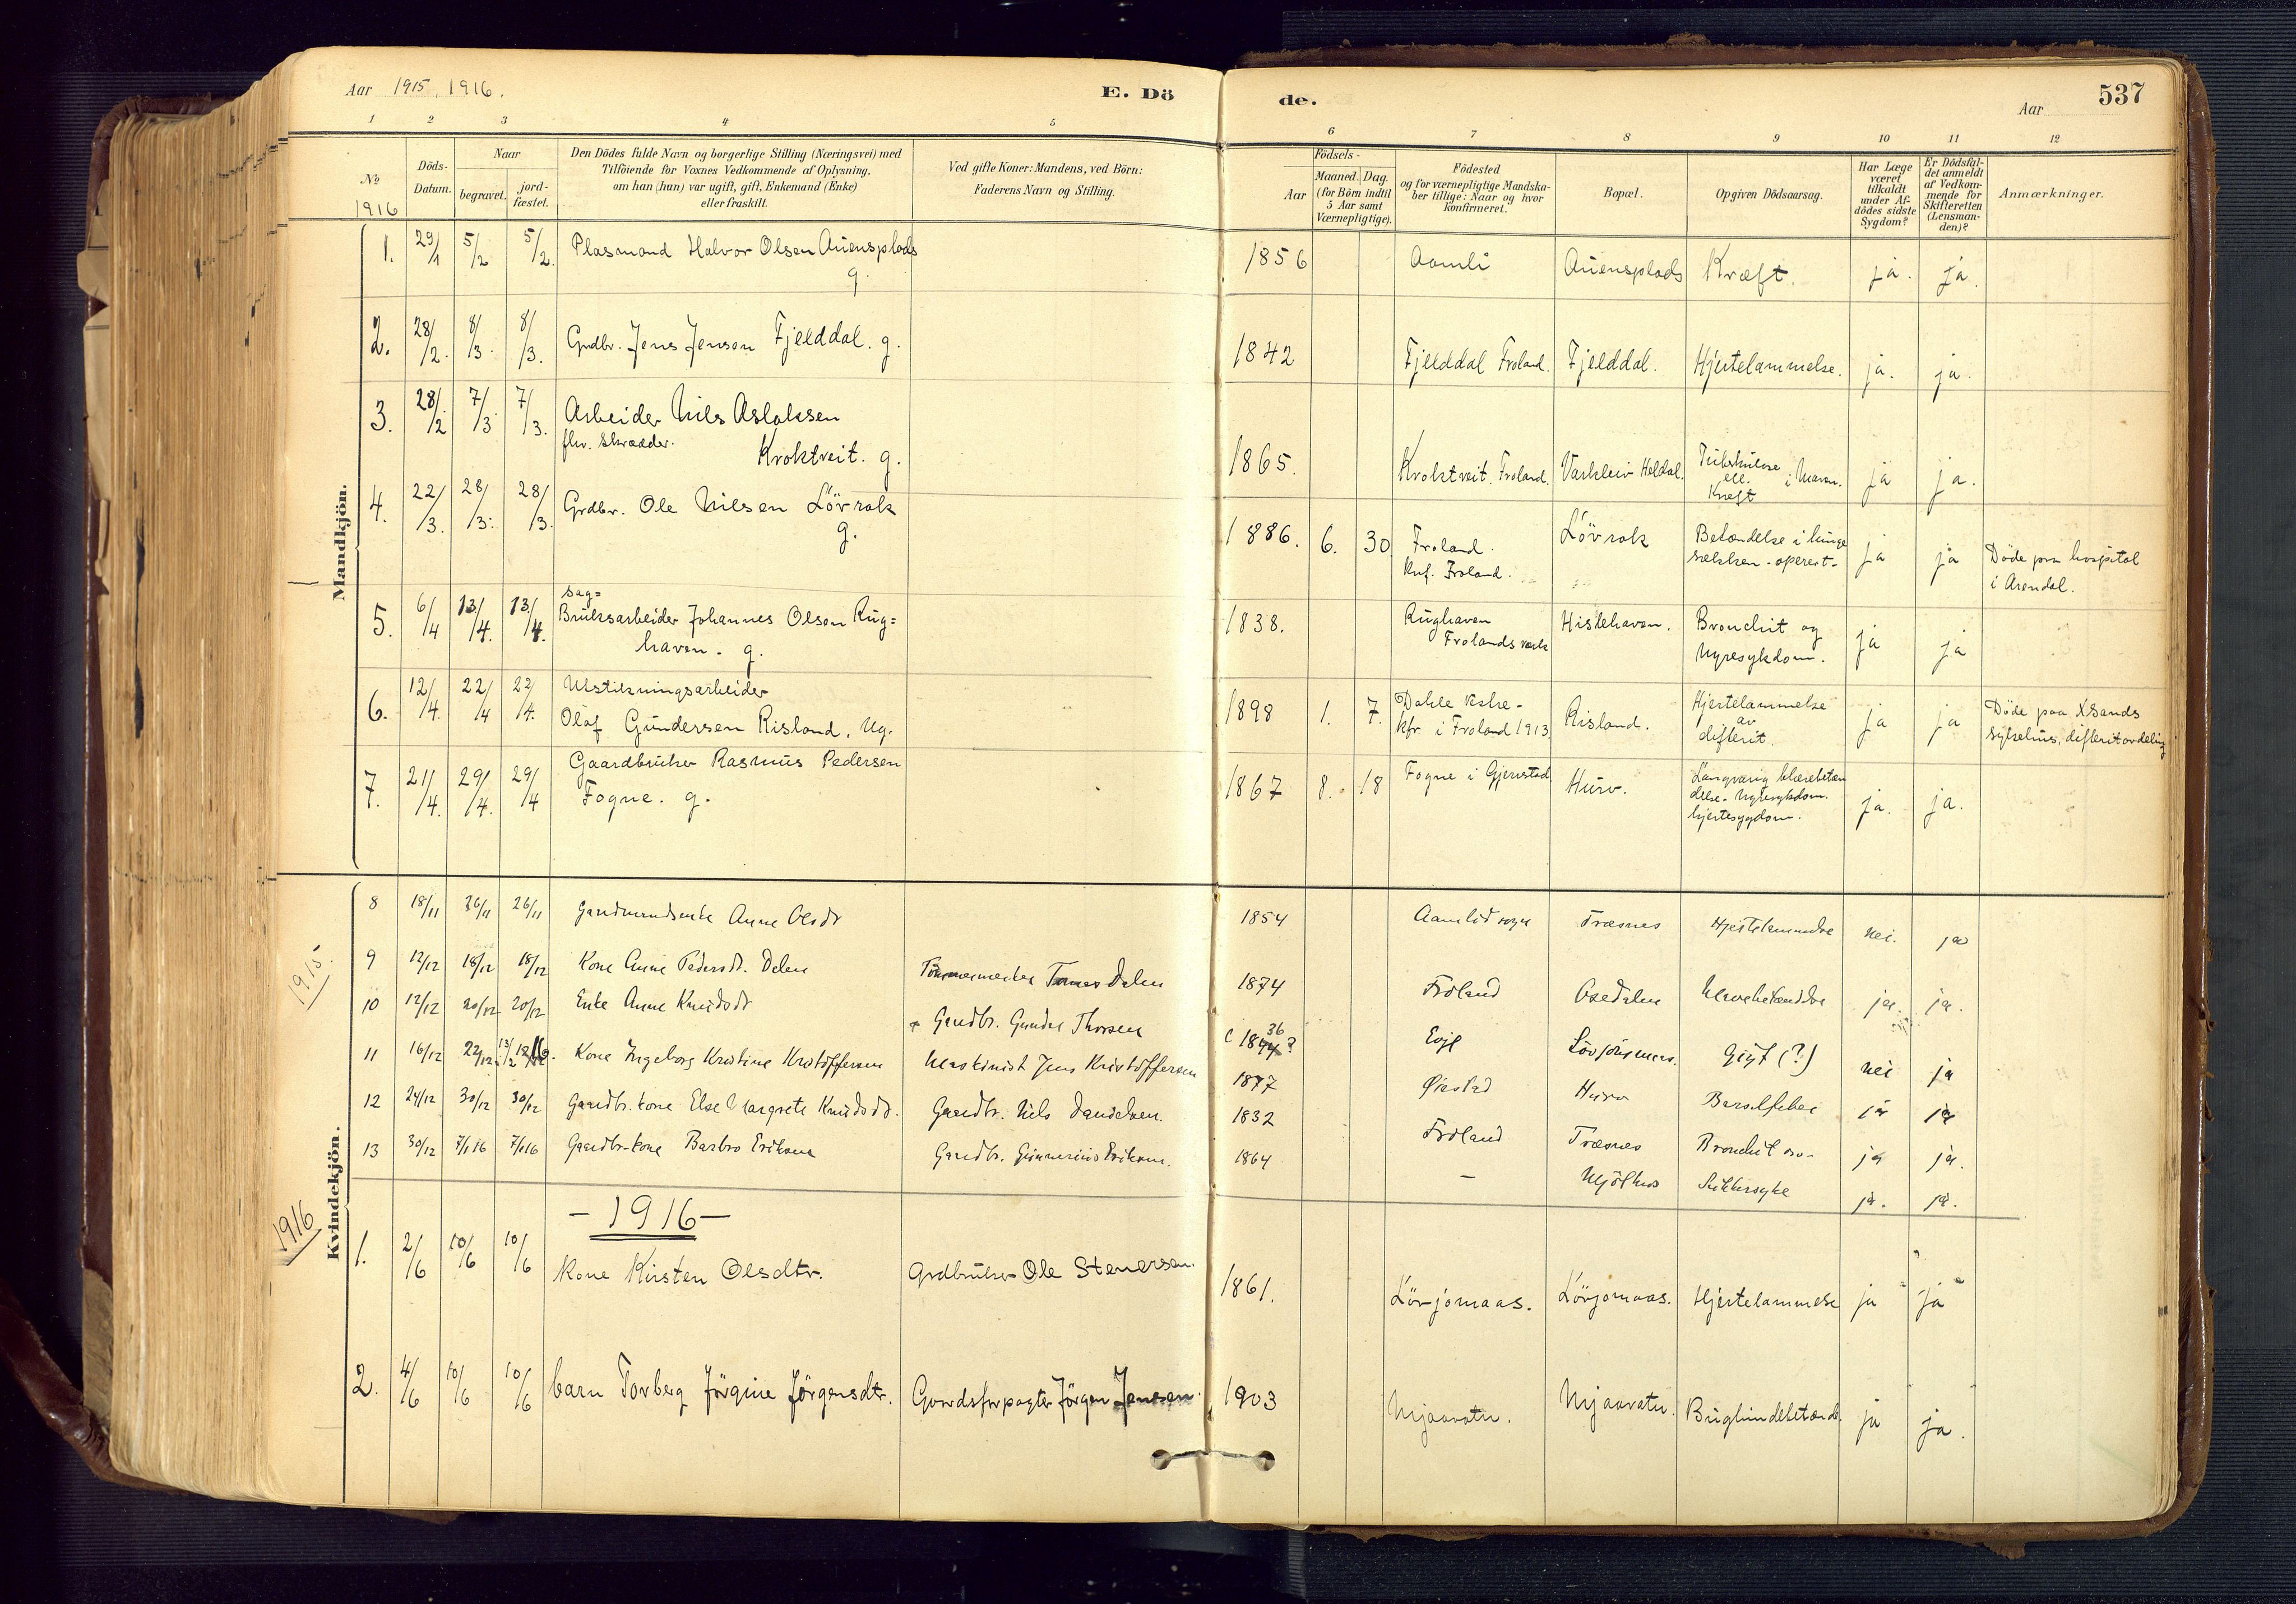 Aar 1915, 1916. E. Dö de. Aar 537
1 2 3 4 5 6 7 8 9 10 11 12
No 1916
Döds-Datum.
Naar begravet. jord-fæstet.
Den Dödes fulde Navn og borgerlige Stilling (Næringsvei) med
Tilföiende for Voxnes Vedkommende af Oplysning,
om han (hun) var ugift, gift, Enkemand (Enke)
eller fraskilt.
Ved gifte Koner: Mandens, ved Börn:
Faderens Navn og Stilling.
Födsels-
Aar
Maaned. Dag.
(for Börn indtil
5 Aar samt
Værnepligtige).
Födested
og for værnepligtige Mandska-
ber tillige: Naar og hvor
konfirmeret.
Bopæl.
Opgiven Dödsaarsag.
Har Læge
været
tilkaldt
under Af-
dödes sidste
Sygdom?
Er Dödsfal-
det anmeldt
af Vedkom-
mende for
Skifteretten
(Lensman-
den)?
Anmærkninger.
Mandkjön.
1. 29/1 5/2 5/2. Plasmand Halvor Olsen Auensplads g. 1856 Aamli Auensplads Kræft. ja. ja.
2. 28/2. 8/3. 8/3. Grdbr. Jens Jensen Fjelddal. g. 1842 Fjelddal Froland. Fjelddal. Hjertelammelse. ja. ja.
3. 28/2 7/3 7/3. Arbeider Nils Aslaksen
fhv. skrædder. Kroktveit. g. 1865. Kroktveit. Froland. Heldal. Tuberkulose ell. Kræft i maven. ja ja.
4. 22/3. 28/3. 28/3. Grdbr. Ole Nilsen Lövrak
g. 1886. 6. 30 Froland. Knf. Froland. Lövrak Betændelse i lunge sækken - operert - ja ja Döde paa hospital i Arendal.
5. 6/4 13/4. 13/4. Sag=
Bruksarbeider Johannes Olsen Rug=
haven. g. 1838. Rughaven Frolands værk Hislehaven. Bronchit og Nyresykdom. ja ja
6. 12/4. 22/4 22/4. Utstikningsarbeider
Olaf Gundersen Risland. Ug. 1898 1. 7. Dahle Vestre - kfr. i Froland 1913 Risland. Hjertelammelse av difterit. ja ja Döde paa Xsands sykehus, difteritavdeling
7. 21/4. 29/4. 29/4 Gaardbruker Rasmus Pedersen
Fogne. g. 1867 8. 18 Fogne i Gjerstad Hurv. Langvarig blærebetændelse - Nyresykdom. hjertesygdom. ja. ja.
1915.
Kvindekjön.
8 18/11 26/11 26/11 Gaardmandsenke Anne Olsdr 1854 Aamlid sogn Træsnes Hjertelammelse nei. ja
9 12/12 18/12 18/12 Kone Anne Pedersdt. Dalen Tømmermester Tomas Dalen 1874 Froland Osedalen Mavebetændelse ja. ja.
10 12/12 20/12 20/12 Enke Anne Knudsdt Gaardbr. Gunder Thorsen c 1844 36 ? Evje Lövjomaas. Gigt (?) nei ja
11 16/12 22/12 13/2 16. Kone Ingeborg Kristine Kristoffersen Maskinist Jens Kristoffersen 1877 Øiestad Hurv Barselfeber ja ja
12 24/12 30/12 30/12 Gaardbr. kone Else Margrete Knudsdt. Gaardbr. Nels Danielsen. 1832 Froland Træsnes Bronchit ja ja.
13 30/12 7/1 16 7/1 16 Gaardbr-kone Barbro Eriksen Gaardbr. Gunnerius Eriksen. 1864 — Mjölhus Sukkersyke ja. ja.
1916
- 1916 -
1. 2/6 10/6 10/6 Kone Kirsten Olsdtr. Grdbruker Ole Stenersen. 1861. Lövjomaas. Lövjomaas. Hjertelammelse ja ja
2. 4/6 10/6 10/6 barn Torberg Jörgine Jörgensdtr. Gaardsforpagter Jörgen Jensen. 1903 Mjaavatn. Mjaavatn. Bughindebetænd. ja ja.